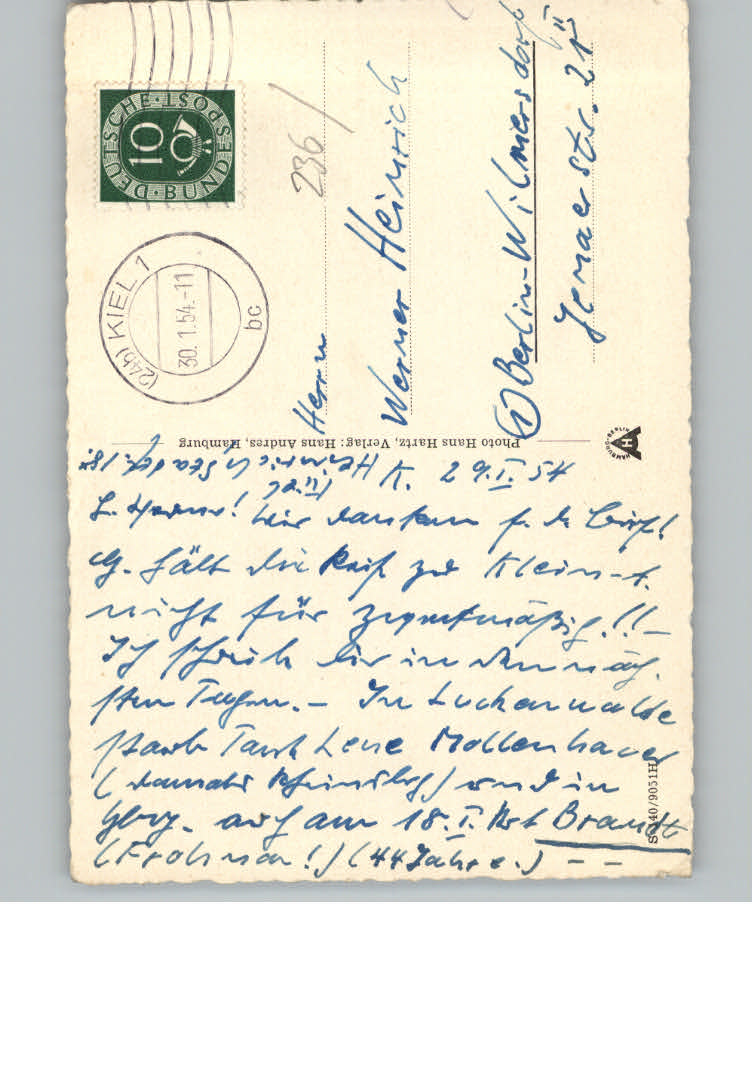 DEUTSCHE BUNDESPOST
10
(24b) KIEL 1
30.1.54.-11
bc
236
Herrn
Werner Heinrich
(1) Berlin-Wilmersdorf
Jenaer Str. 21 II
Photo Hans Hartz, Verlag: Hans Andres, Hamburg
HAMBURG-BERLIN
H A
Heinrich
Kiel
K. 29.I.54
L. Werner! Wir danken f. d. Brief!
G. hält die Reise zu Klein-
nicht für zweckmäßig!! –
Ich schreibe dir in den näch-
sten Tagen. – In Luckenwalde
starb Tante Lene Mollenhauer
(damals Rheinsberg) und in
auch am 18.I. Brandt
(Frohnau!) (44 Jahre.) – –
40/9051H